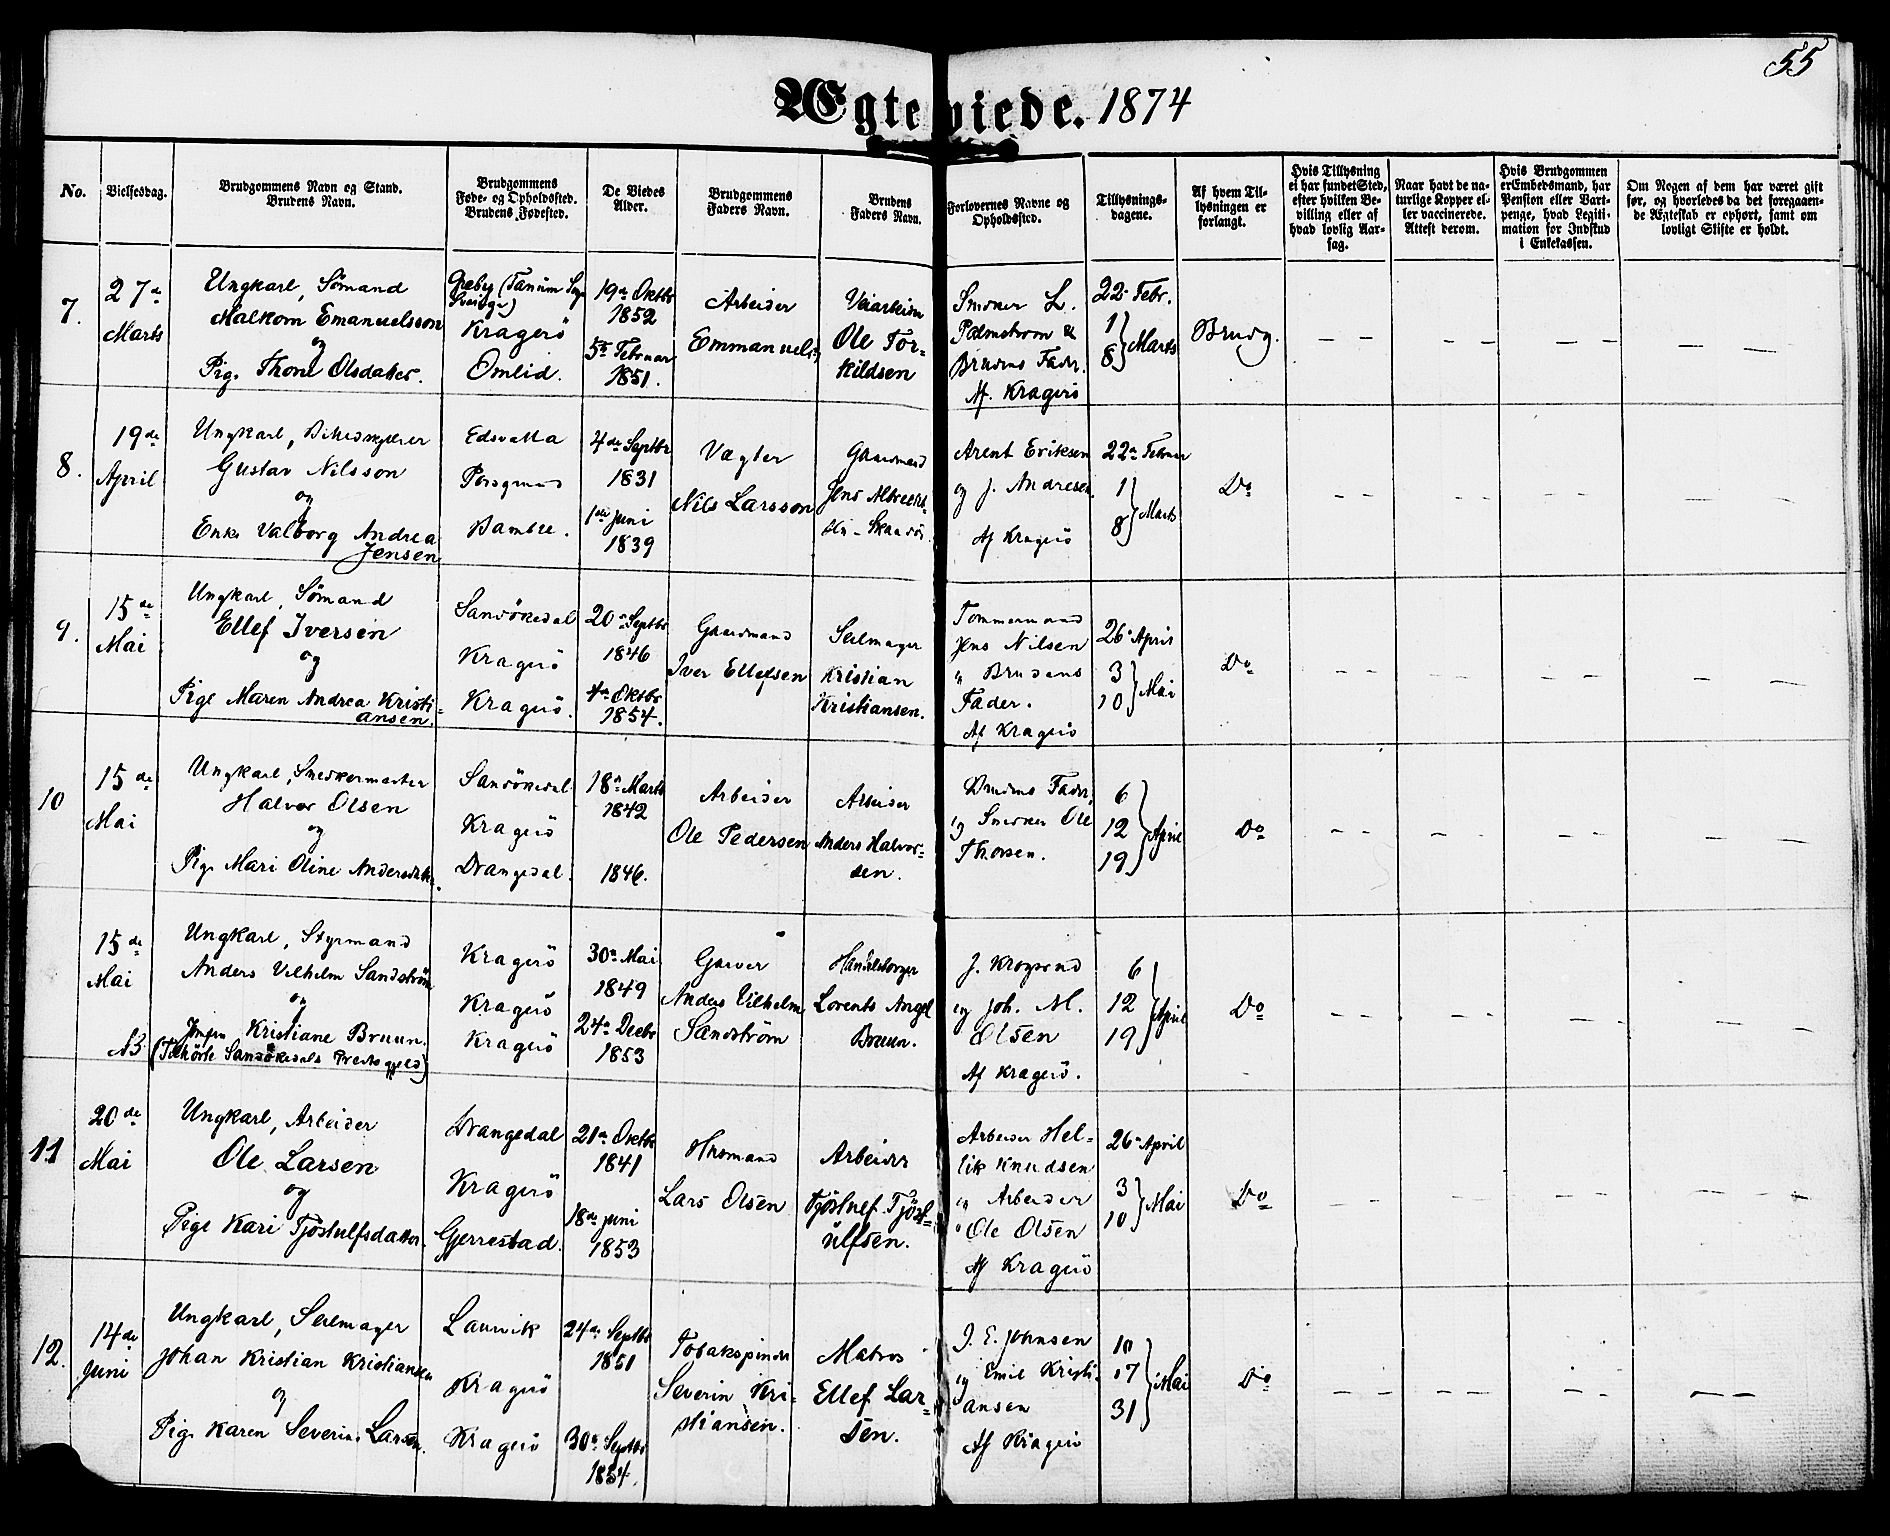 55
Ægteviede. 1874
No.
Vielsesdag.
Brudgommens Navn og Stand.
Brudens Navn.
Brudgommens
Føde- og Opholdssted.
Brudens Fødested.
De Viedes
Alder.
Brudgommens
Faders Navn.
Brudens
Faders Navn.
Forlovernes Navne og
Opholdssted.
Tillysnings-
dagene.
Af hvem Til-
lysningen er
forlangt.
Hvis Tillysning
ei har fundet Sted,
efter hvilken Be-
villing eller af
hvad lovlig Aar-
sag.
Naar havt de na-
turlige Kopper el-
ler vaccinerede.
Attest derom.
Hvis Brudgommen
er Embedsmand, har
Pension eller Vart-
penge, hvad Legiti-
mation for Indskud
i Enkekassen.
Om Nogen af dem har været gift
før, og hvorledes da det foregaaen-
de Ægteskab er ophørt, samt om
lovligt Skifte er holdt.
7.
27de
Marts
Ungkarl, Sömand
Malkom Emanuelsson
og
Pige Thone Olsdatter.
(Tanum
Sverige)
Kragerö
Omlid.
19de Oktbr
1852
5te Februar
1851.
Arbeider
Emmanuels
Veiarbeider
Ole Tor-
kildsen
Snedker L.
Palmstrom &
Brudens Fader.
Af Kragerö
22de Febr.
1
8 } Marts
Brudg.
8.
19de
April
Ungkarl,
Gustav Nilsson
og
Enke Valborg Andrea
Jensen
Edsvalla
Porsgrund
Bamble.
4de Septbr
1831
1ste Juni
1839
Vægter
Nils Larsson
Gaardmand
Jens Albrects-
Arent Eriksen
og J. Andresen
Af Kragerö
22de Februar
1
8 } Marts
Do
9.
15de
Mai
Ungkarl, Sömand
Ellef Iversen
og
Pige Maren Andrea Kristi-
ansen.
Sandökedal
Kragerö
Kragerö.
20de Septbr
1846
4de Oktbr
1854.
Gaardmand
Iver Ellefsen
Seilmager
Kristian
Kristiansen.
Tømmermand
Jens Nilsen
" Brudens
Fader.
Af Kragerö
26de April
3
10 } Mai
Do
10
15de
Mai
Ungkarl, Snedkermester
Halvor Olsen
og
Pige Mari Oline Andersdatter.
Sandökedal
Kragerö
Drangedal.
18de Marts
1842
1846.
Arbeider
Ole Pedersen
Arbeider
Anders Halvor-
sen.
Brudens Fader,
og Snedker Ole
Thorsen.
6
12
19 } April
Do
15de
Mai
NB
Ungkarl, Styrmand
Anders Vilhelm Sandström
og
Jomfru Kristiane Bruun.
(Tilhörte Sandökedals Præstegjeld)
Kragerö
Kragerö
Kragerö
30te Mai
1849
24de Decbr
1853
Garver
Anders Vilhelm
Sandström
Handelsborger
Lorents Angel
Bruun.
J. Krogsrud
og Joh. M.
Olsen
Af Kragerö.
6
12
19 } April
Do
11
20de
Mai
Ungkarl, Arbeider
Ole Larsen
og
Pige Kari Tjöstulfsdatter.
Drangedal
Kragerö
Gjerrestad.
21de Oktbr
1841
18de Juni
1853
Husmand
Lars Olsen
Arbeider
Tjöstulf Tjöst-
ulfsen.
Arbeider Hel-
lik Knudsen
" Arbeider
" Ole Olsen
Af Kragerö
26de April
3
10 } Mai
Do
12.
14de
Juni
Ungkarl, Seilmager
Johan Kristian Kristiansen
og
Pige Karen Severine Larsen.
Laurvik
Kragerö
Kragerö
24de Septbr
1851
30te Septbr
1854.
Tobakspinder
Severin Kri-
stiansen.
Matros
Ellef Lar-
sen.
J. E. Johnsen
og Emil Kristi-
ansen
Af Kragerö
10
17
31 } Mai
Do